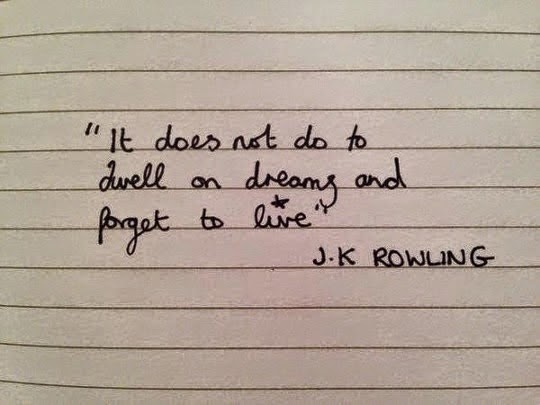 "It does not do to
dwell on dreams and
forget to live"
J.K ROWLING